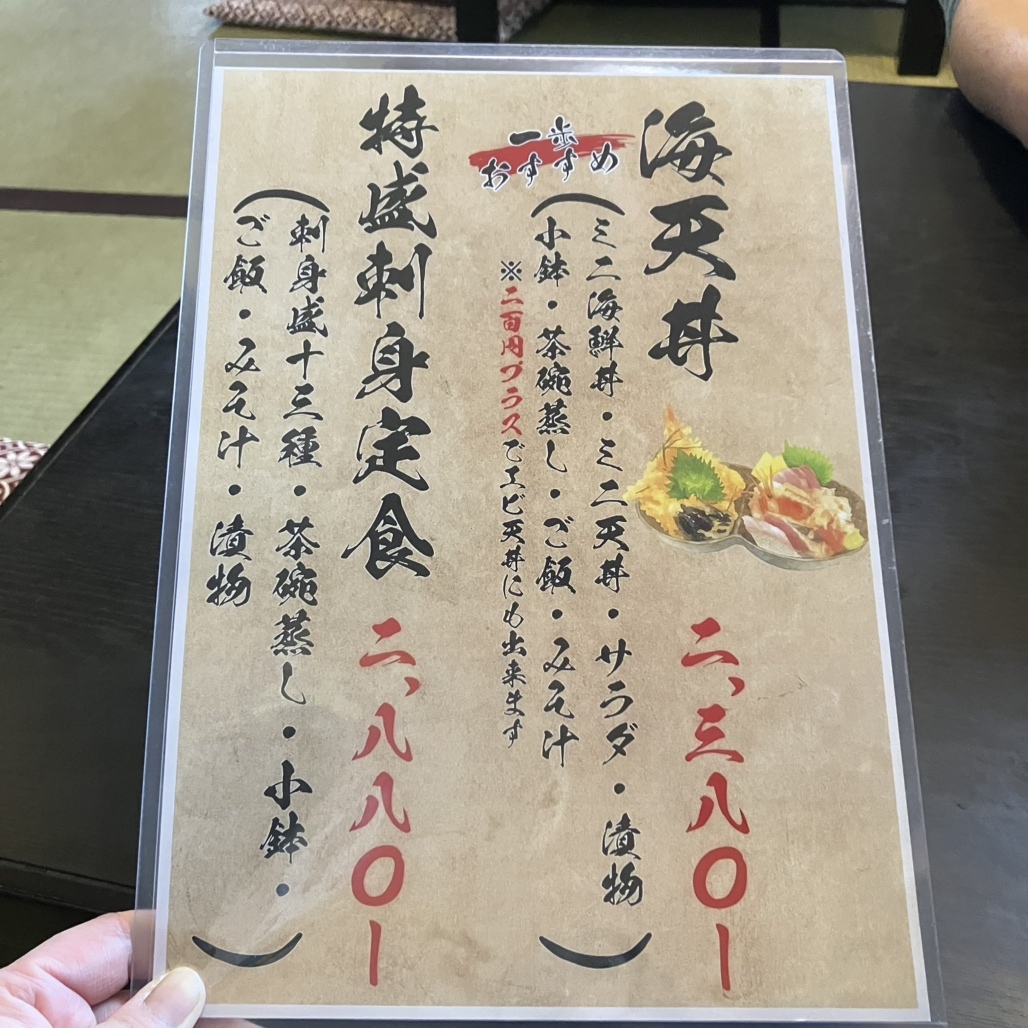 海天丼
一歩
おすすめ
（ミニ海鮮丼・ミニ天丼・サラダ・漬物
小鉢・茶碗蒸し・ご飯・みそ汁）
※二百円プラスでエビ天丼にも出来ます
二、三八〇ー
特盛刺身定食
（刺身盛十三種・茶碗蒸し・小鉢・
ご飯・みそ汁・漬物）
二、八八〇ー